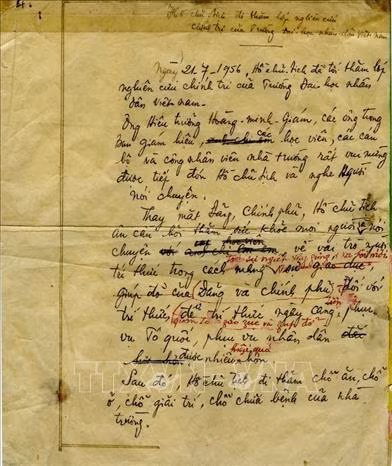 Hồ chủ tịch đi thăm lớp nghiên cứu
chính trị của Trường Đại học nhân dân Việt nam
Ngày 21-7-1956, Hồ chủ tịch đã tới thăm lớp
nghiên cứu chính trị của Trường Đại học nhân
dân Việt-nam.
Ông Hiệu trưởng Hoàng-minh-Giám, các ông trong
Ban Giám hiệu, các học viên, các cán
bộ và công nhân viên nhà trường rất vui mừng
được tiếp đón Hồ chủ tịch và nghe Người
nói chuyện.
Thay mặt Đảng, Chính phủ, Hồ chủ tịch
ân cần hỏi thăm sức khỏe mọi người và nói
chuyện với về vai trò người
trí thức trong cách mạng
giúp đỡ của Đảng và chính phủ đối với
trí thức, để trí thức ngày càng phục
vụ Tổ quốc, phục vụ nhân dân
được nhiều hơn
Sau đó, Hồ chủ tịch đi thăm chỗ ăn, chỗ
ở, chỗ giải trí, chỗ chữa bệnh của nhà
trường.